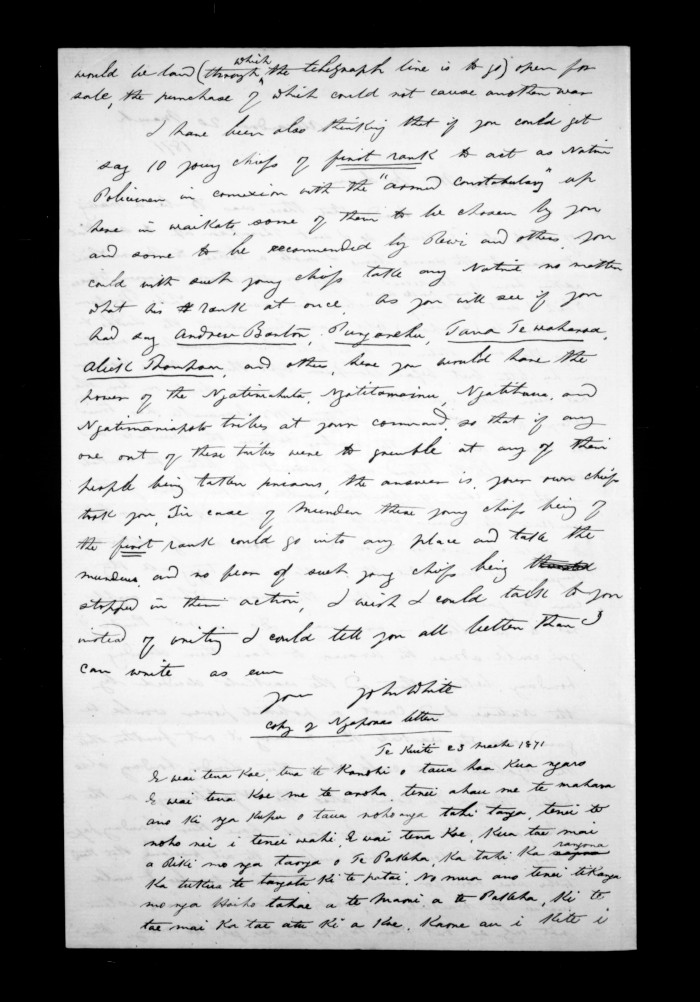 would be land (through which the telegraph line is to go) open for
sale, the purchase of which could not cause another war
I have been also thinking that if you could get
say 10 young chiefs of first rank to act as Native
Policemen in connexion with the "armed constabulary" up
here in waikato, some of them to be chosen by you
and some to be recommended by Rewi and others, you
could with such young chiefs take any Native no matter
what his rank at once. As you will see if you
had say Andrew Barton, Tana Te waharoa,
Alick and others, here you would have the
power of the Ngatitamainu, Ngatituwa, and
Ngatimaniapoto tribes at your command, so that if any
one out of these tribes were to grumble at any of their
people being taken prisoners, the answer is, your own chiefs
took you, In case of murder these young chiefs being of
the first rank could go into any place and take the
murderer, and no fear of such young chiefs being
stopped in their action, I wish I could talk to you
instead of writing I could tell you all better than I
can write as ever
your John White
copy of Ngapora's letter
Te Kuiti 23 Maehe 1871
E wai tena Koe, tena te Kanohi o taua hoa Kua ngaro
E wai tena Koe me te aroha, tenei ahau me te mahara
ano ki nga Kupu o taua nohoanga tahi tanga, tenei te
noho nei i tenei wahi, E wai tena Koe, Kua tae mai
a Piki mo nga taonga o Te Pakeha, Ka tahi Ka rangona
Ka tukua te tangata Ki te patai. No mua ano tenei tikanga
mo nga Hoiho tahae a te Maori a te Pakeha, Ki te
tae mai Ka tae atu Ki a Koe. Kaore au i Kite i